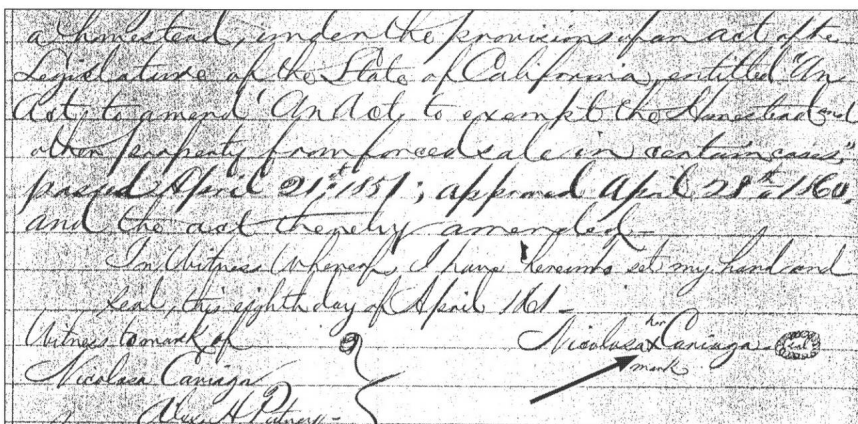 a homestead, under the provisions of an act of the
Legislature of the State of California, entitled "An
Act, to amend 'An Act, to exempt the Homestead and
other property from forced sale in certain cases,"
passed April 21st 1851; approved April 28th 1860,
and the act thereby amended—
In Witness Whereof, I have hereunto set my hand and
seal, this eighth day of April 1861—
Witness to mark of
Nicolasa her x mark Caniaga seal
Nicolasa Caniaga
Alex. H. Putney—